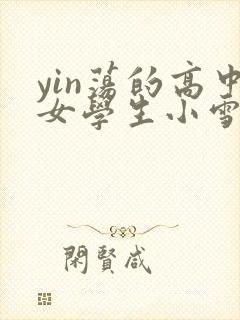 yin蕩的高中
女學生小雪
閑賢咸